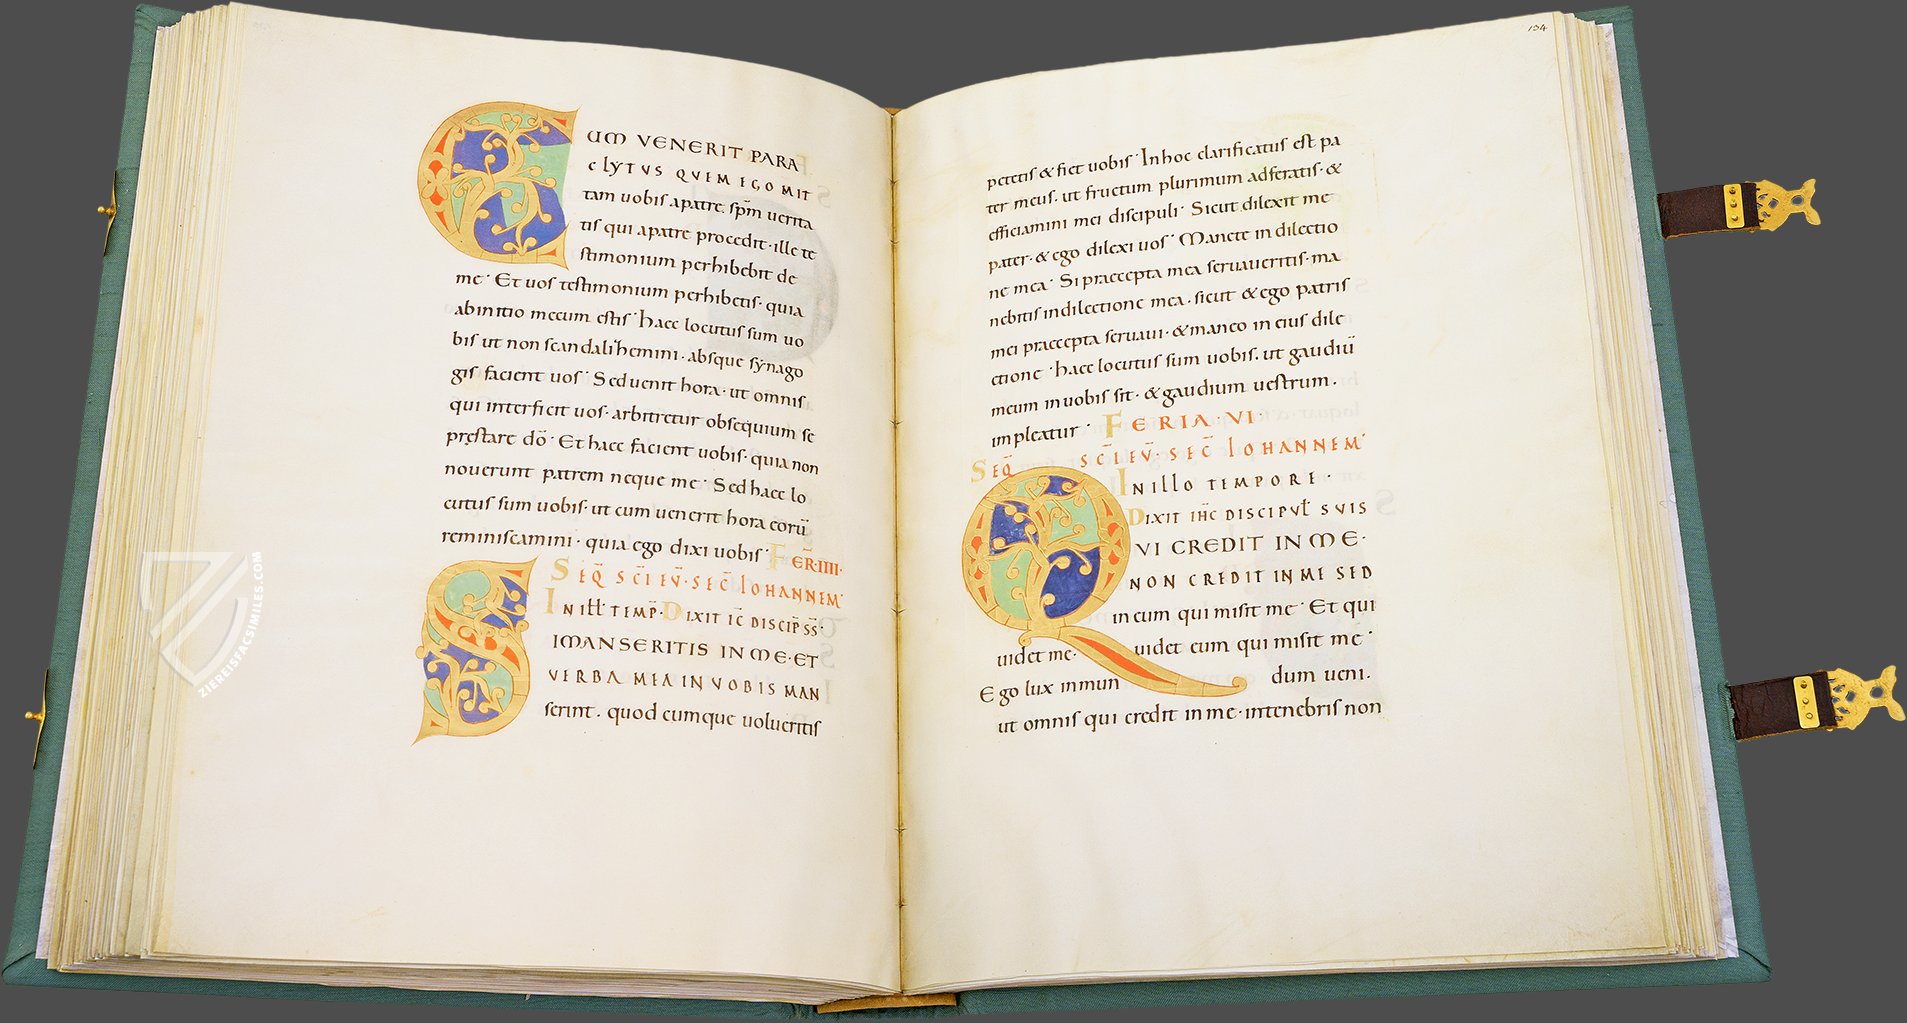 CUM VENERIT PARA
CLYTUS QUEM EGO MIT
tam uobis apatre. spm uerita
tis qui apatre procedit· ille te
stimonium perhibebit de
me· Et uos testimonium perhibetis· quia
abinitio mecum estis· haec locutus sum uo
bis ut non scandalihemini· absque synago
gis facient uos· Sed uenit hora· ut omnis
qui interficit uos· arbitretur obsequium se
prestare dō· Et haec facient uobis· quia non
nouerunt patrem neque me· Sed haec lo
cutus sum uobis· ut cum uenerit hora eorū
reminiscamini· quia ego dixi uobis· FER̄·IIII·
SEQ̄ SC̄I EV̄· SEC̄ IOHANNEM
IN ILL̄ TEMP̄· DIXIT IC̄ DISCIP̄ SS̄·
SI MANSERITIS IN ME· ET
VERBA MEA IN VOBIS MAN
serint. quod cumque uolueritis
134
petetis & fiet uobis· In hoc clarificatus est pa
ter meus. ut fructum plurimum adferatis· &
efficiamini mei discipuli· Sicut dilexit me
pater· & ego dilexi uos· Manete in dilectio
ne mea· Si praecepta mea seruaueritis· ma
nebitis in dilectione mea. sicut & ego patris
mei praecepta seruaui· & maneo in eius dile
ctione· haec locutus sum uobis. ut gaudiū
meum in uobis sit· & gaudium uestrum.
impleatur· FERIA·VI·
SEQ̄ SC̄I EV̄· SEC̄ IOHANNEM·
IN ILLO TEMPORE·
DIXIT IHC̄ DISCIPVL̄ SVIS
QVI CREDIT IN ME·
NON CREDIT IN ME SED
in eum qui misit me· Et qui
uidet me· uidet eum qui misit me·
Ego lux inmundum ueni.
ut omnis qui credit in me· intenebris non
ZIEREISFACSIMILES.COM